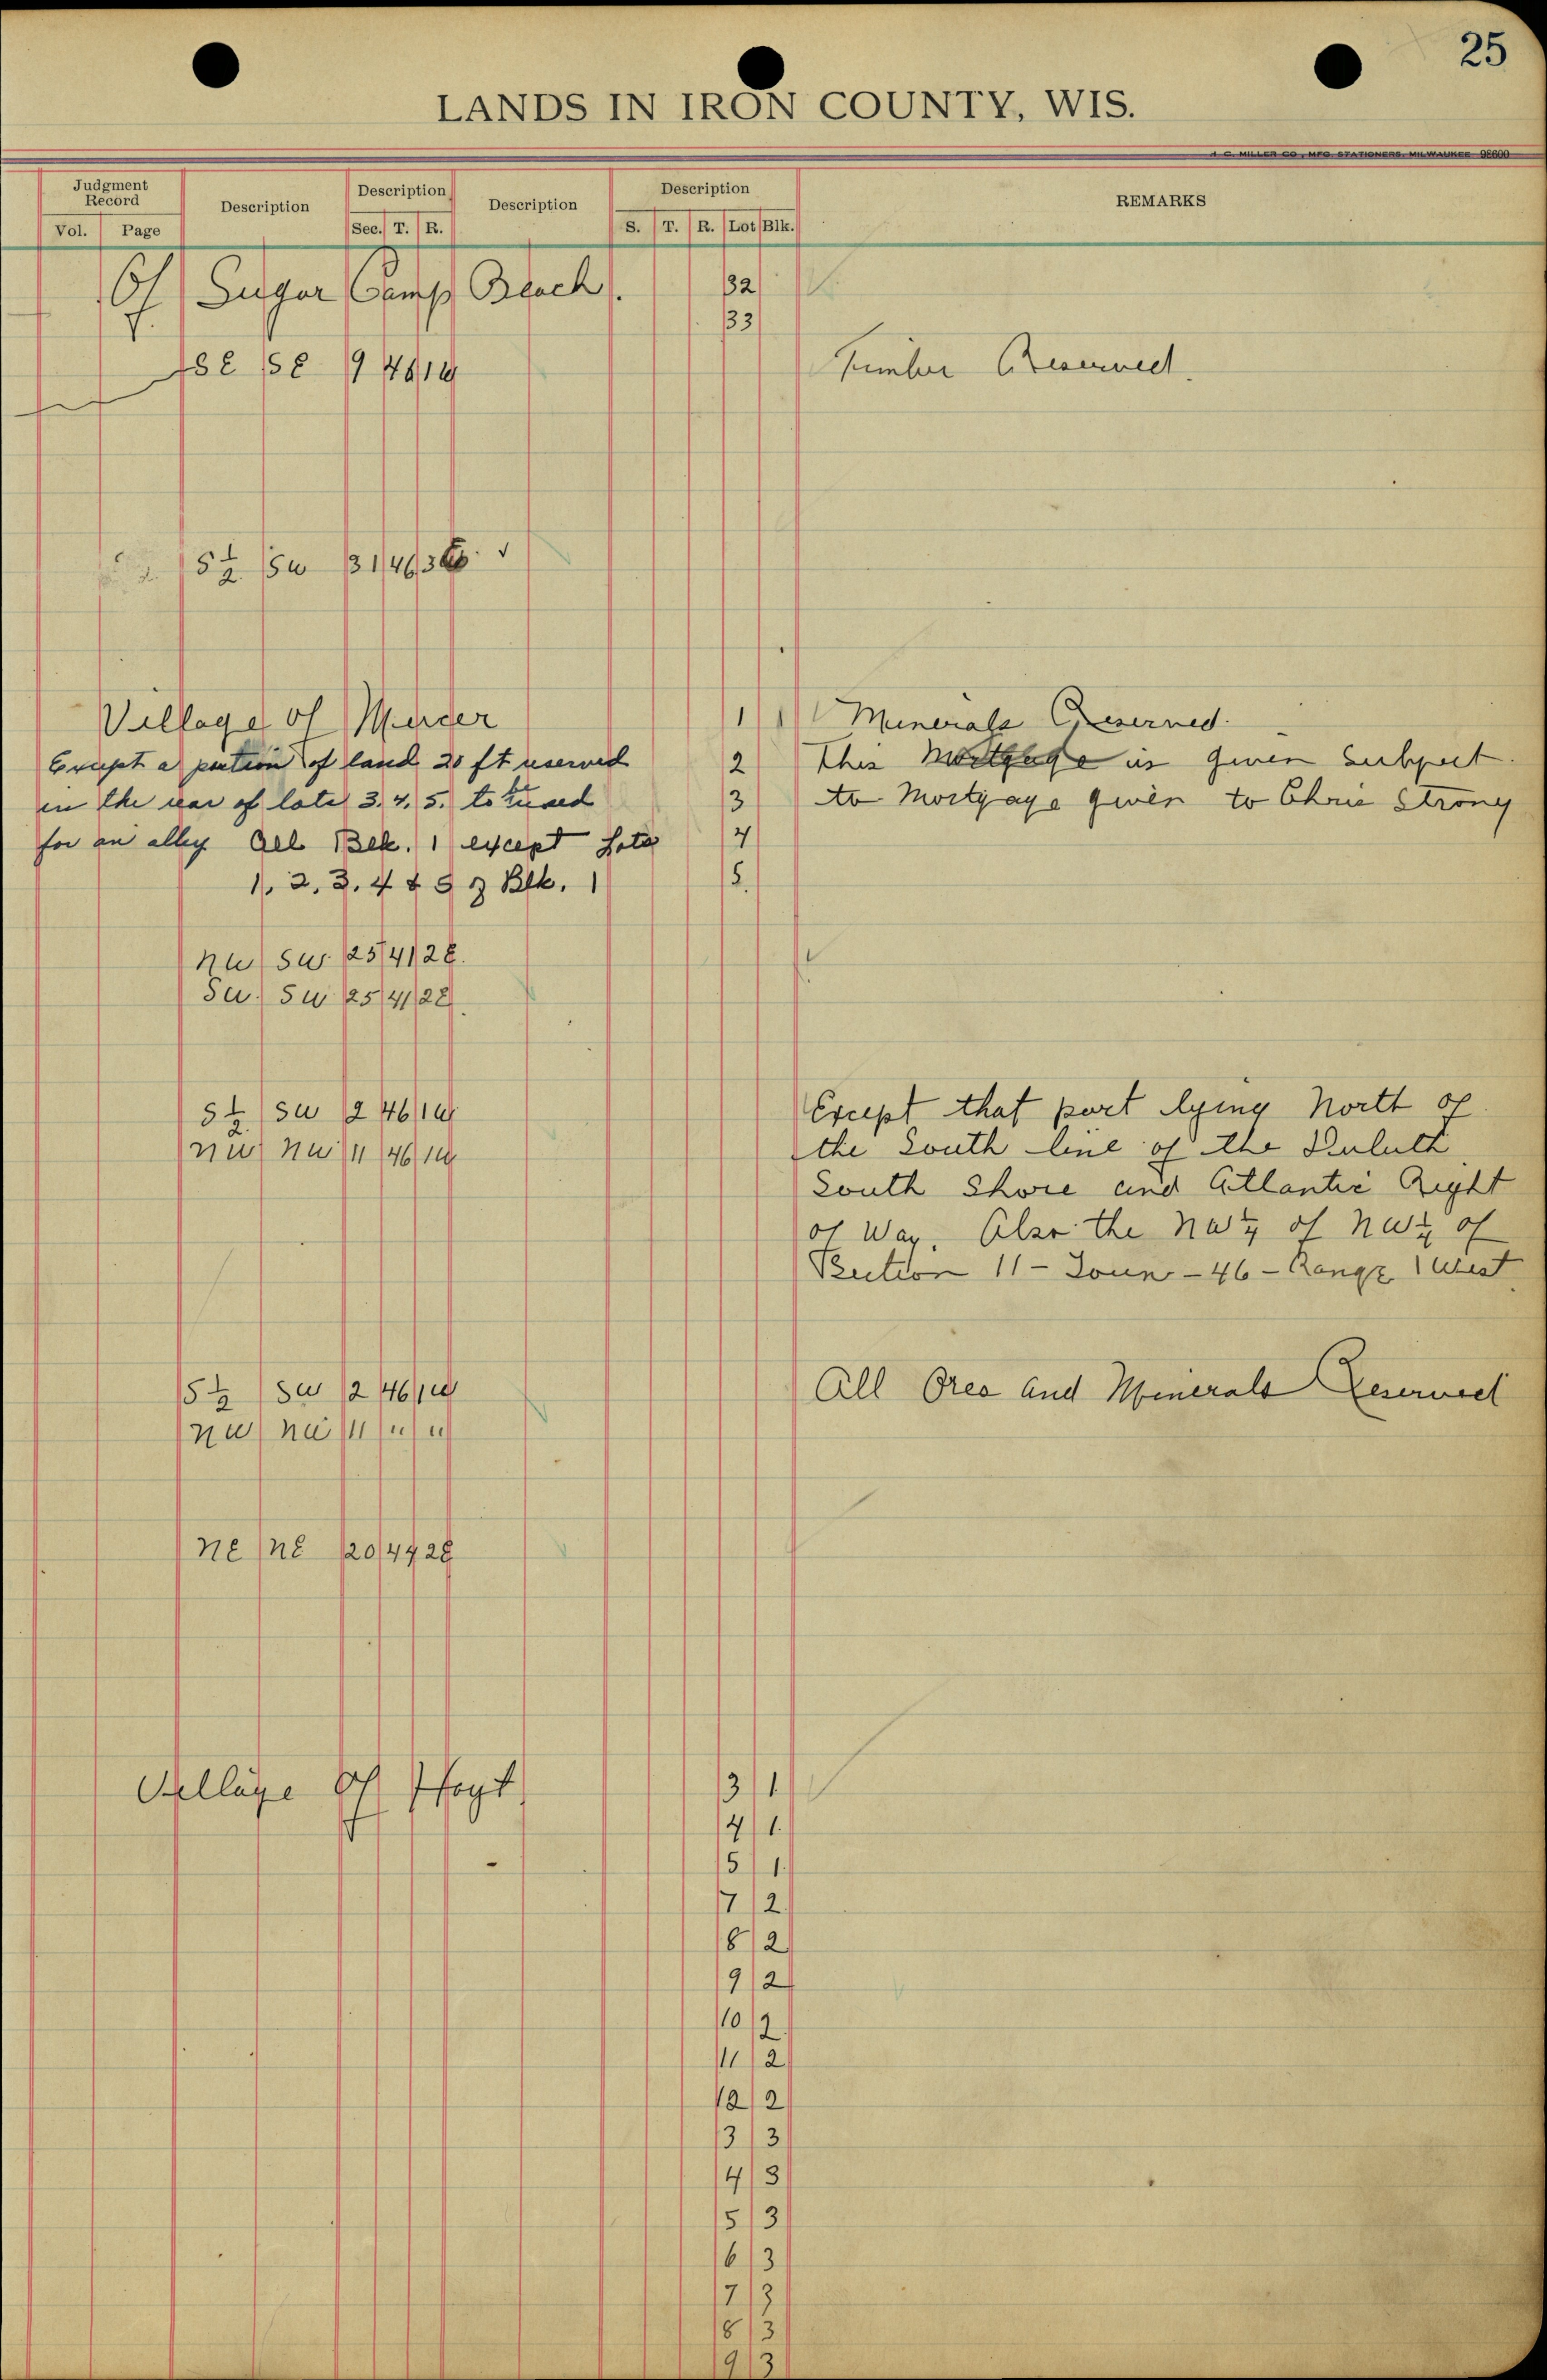 25
LANDS IN IRON COUNTY, WIS.
H. C. MILLER CO., MFG. STATIONERS, MILWAUKEE 98600
Judgment Record Description Description Description Description REMARKS
Vol. Page Sec. T. R. S. T. R. Lot Blk.
Of Sugar Camp Beach. 32
33
se se 19 46 1 Timber Reserved.
S½ SW 31 46 3
Village of Mercer 1 1 Minerals Reserved.
Except a portion of land 20 ft reserved 2 This Mortgage is given subject
in the rear of lots 3. 4. 5. to be used 3 to Mortgage given to Chris Strong
for an alley All Blk. 1 except Lots 4
1. 2. 3. 4 & 5 of Blk. 1 5.
NW SW 25 41 2E.
SW SW 25 41 2E
S½ SW 2 46 1W Except that part lying North of
NW NW 11 46 1W the South line of the Duluth
South Shore and Atlantic Right
of Way. Also the NW¼ of NW¼ of
Section 11 - Town - 46 - Range 1 West
S½ SW 2 46 1W All Ores and Minerals Reserved
NW NW 11 " "
NE NE 20 44 2E
Village Of Hoyt 3 1
4 1.
5 1.
7 2
8 2
9 2
10 2
11 2
12 2
3 3
4 3
5 3
6 3
7 3
8 3
9 3